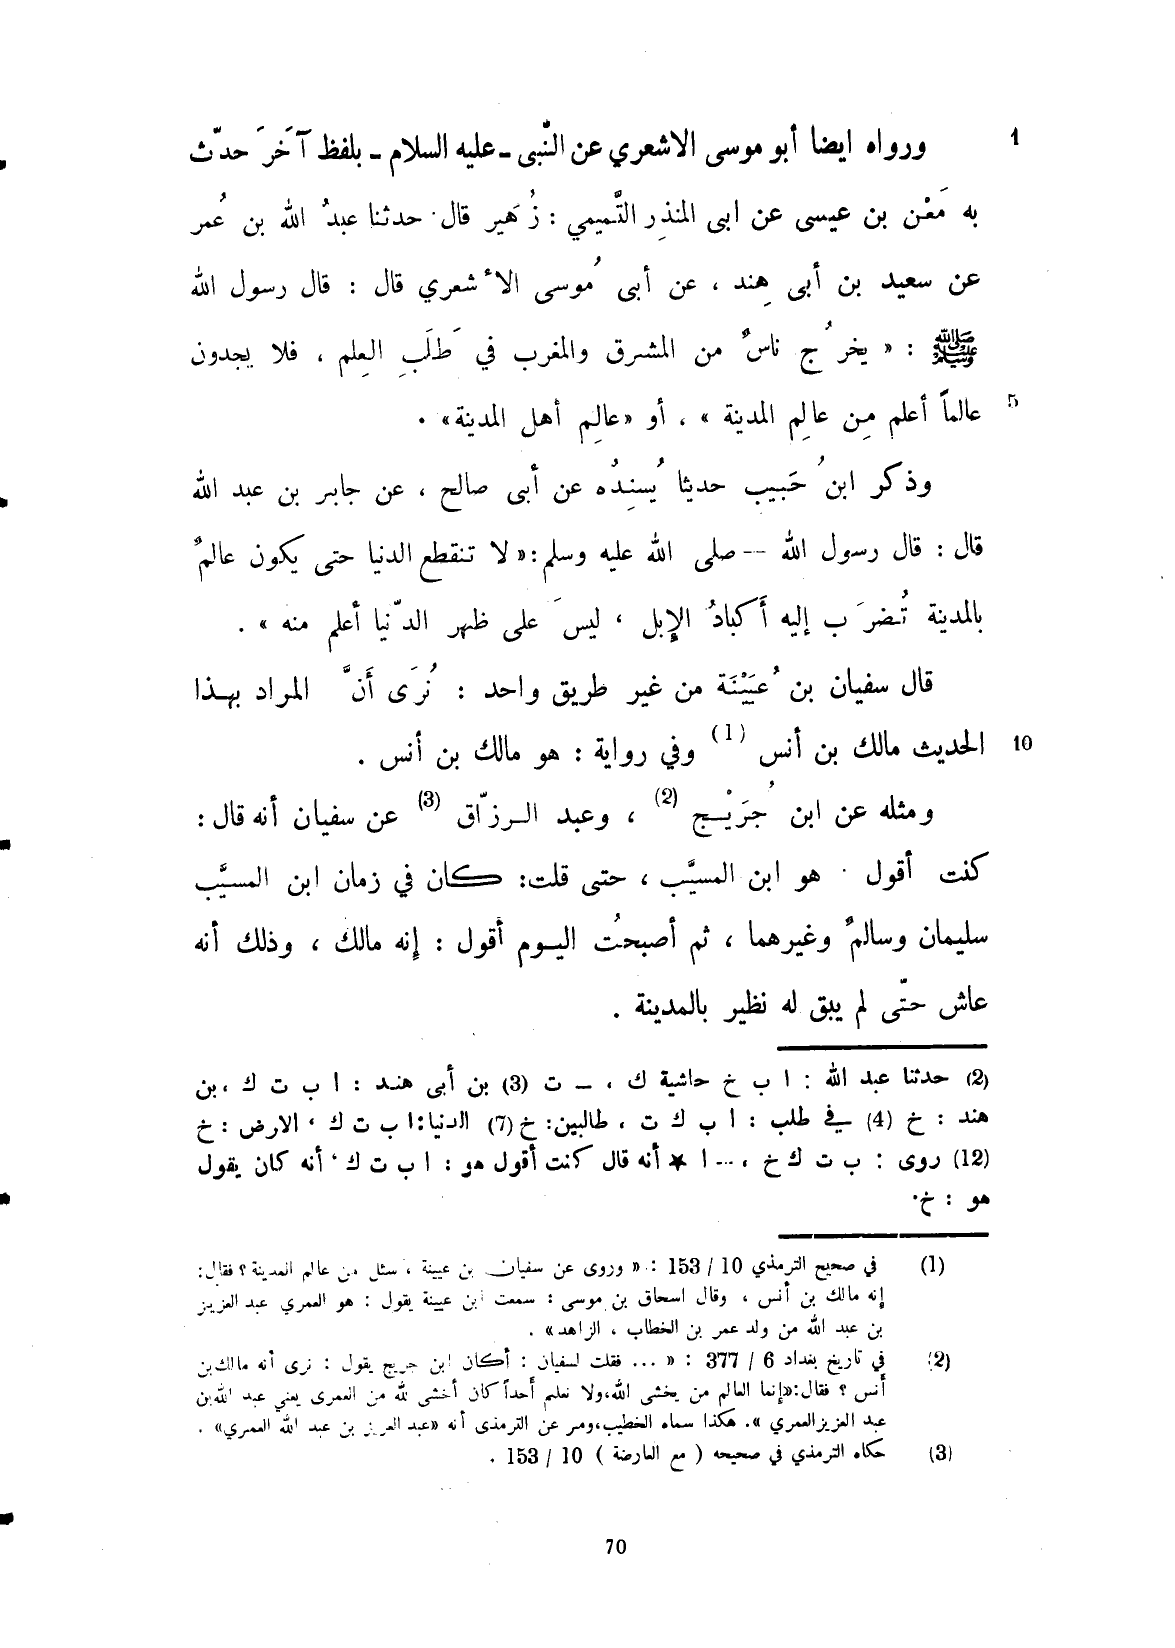 1 ورواه ايضا أبو موسى الاشعري عن النّبى ـ عليه السلام ـ بلفظ آخَرَ حدّث
به مَعْن بن عيسى عن ابى المنذِر التَّميمي : زُهَير قال حدثنا عبدُ الله بن عُمر
عن سعيد بن أبى هِند ، عن أبى مُوسى الأشعري قال : قال رسول الله
ﷺ : « يخرُج ناسٌ من المشرق والمغرب في طَلَبِ العِلم ، فلا يجدون
5 عالماً أعلم مِن عالِم المدينة » ، أو «عالِم أهل المدينة» .
وذكر ابنُ حَبيب حديثا يُسنِدُه عن أبى صالح ، عن جابر بن عبد الله
قال : قال رسول الله — صلى الله عليه وسلم :« لا تنقطع الدنيا حتى يكون عالمٌ
بالمدينة تُضرَب إليه أَكبادُ الإبل ، ليسَ على ظهر الدّنيا أعلم منه » .
قال سفيان بن عُيَيْنَة من غير طريق واحد : نُرَى أَنَّ المراد بهذا
10 الحديث مالك بن أنس (1) وفي رواية : هو مالك بن أنس .
ومثله عن ابن جُرَيْج (2) ، وعبد الرزّاق (3) عن سفيان أنه قال :
كنت أقول هو ابن المسيَّب ، حتى قلت: كان في زمان ابن المسيَّب
سليمان وسالمٌ وغيرهما ، ثم أصبحتُ اليوم أقول : إنه مالك ، وذلك أنه
عاش حتّى لم يبق له نظير بالمدينة .
(2) حدثنا عبد الله : ا ب خ حاشية ك ، ـ ت (3) بن أبى هند : ا ب ت ك ، بن
هند : خ (4) في طلب : ا ب ك ت ، طالبين: خ (7) الدنيا: ا ب ت ك ، الارض : خ
(12) روى : ب ت ك خ ، ... ا ★ أنه قال كنت أقول هو : ا ب ت ك ، أنه كان يقول
هو : خ.
(1) في صحيح الترمذي 10 / 153 : « وروى عن سفيان بن عيينة ، سئل من عالم المدينة ؟ فقال:
إنه مالك بن أنس ، وقال اسحاق بن موسى : سمعت ابن عيينة يقول : هو العمري عبد العزيز
بن عبد الله من ولد عمر بن الخطاب ، الزاهد» .
(2) في تاريخ بغداد 6 / 377 : « ... فقلت لسفيان : أكان ابن جريج يقول : نرى أنه مالك بن
أنس ؟ فقال:«إنما العالم من يخشى الله،ولا نعلم أحداً كان أخشى لله من العمرى يعني عبد الله بن
عبد العزيز العمري ». هكذا سماه الخطيب،ومر عن الترمذى أنه «عبد العزيز بن عبد الله العمري» .
(3) حكاه الترمذي في صحيحه ( مع العارضة ) 10 / 153 .
70